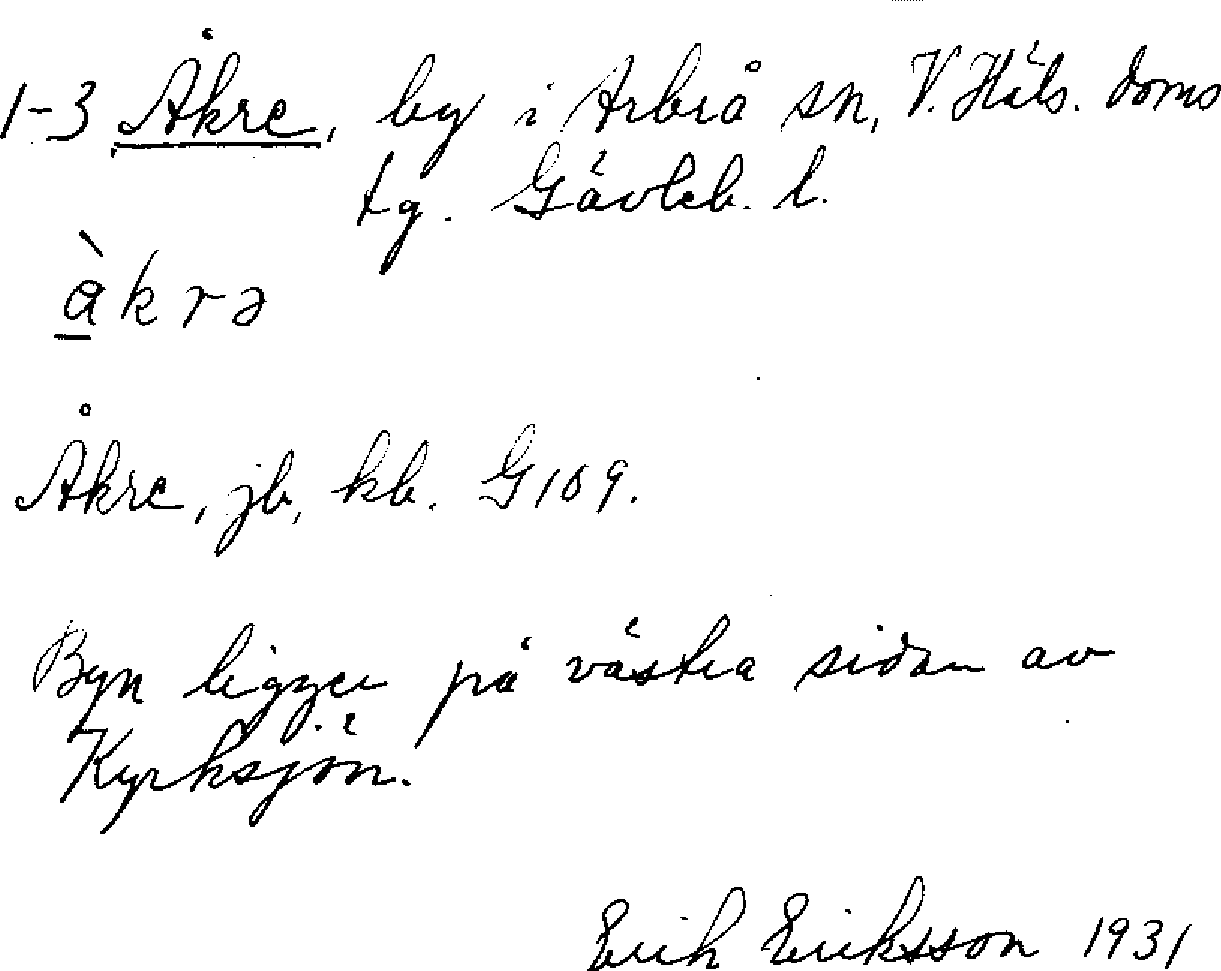 1-3 Åkre, by i Arbrå sn, V. Häls. doms
tg. Gävleb. l.
à̱krə
Åkre, jb, kb. G109.
Byn ligger på västra sidan av
Kyrksjön.
Erik Eriksson 1931